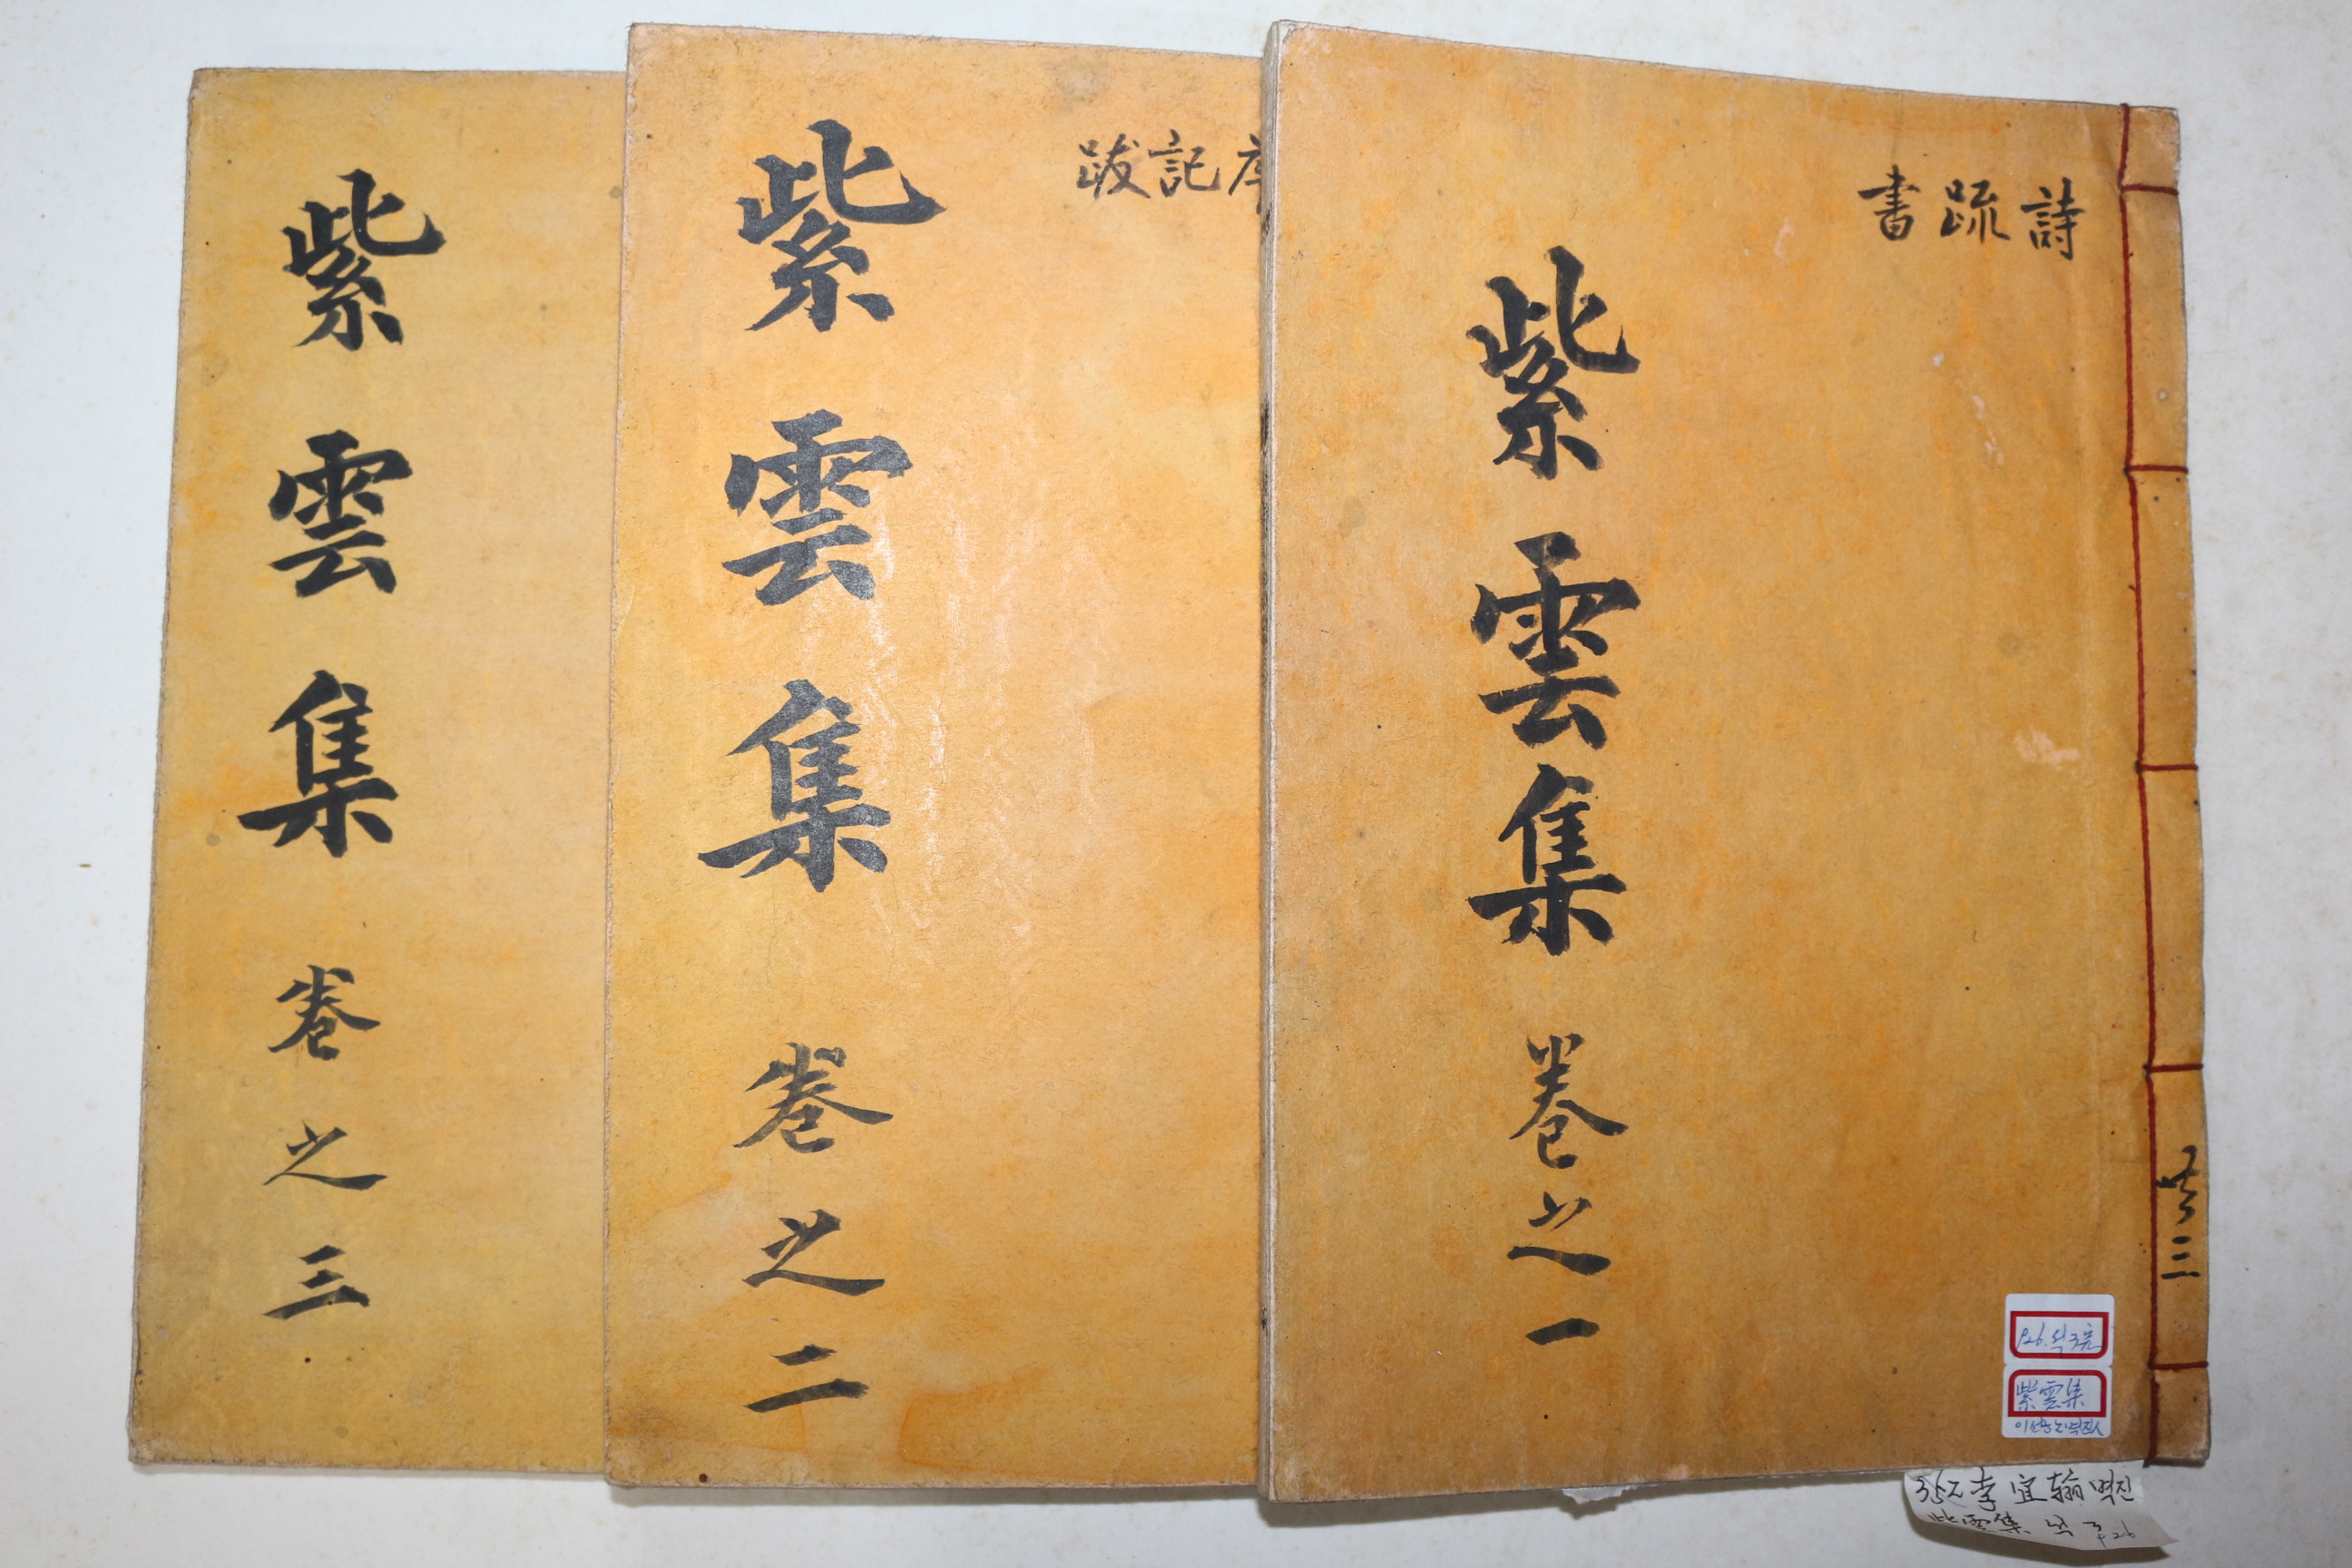 紫雲集 卷之一
詩疏書
共三
紫雲集
紫雲集 卷之二
序記跋
紫雲集 卷之三
李宜翰
紫雲集